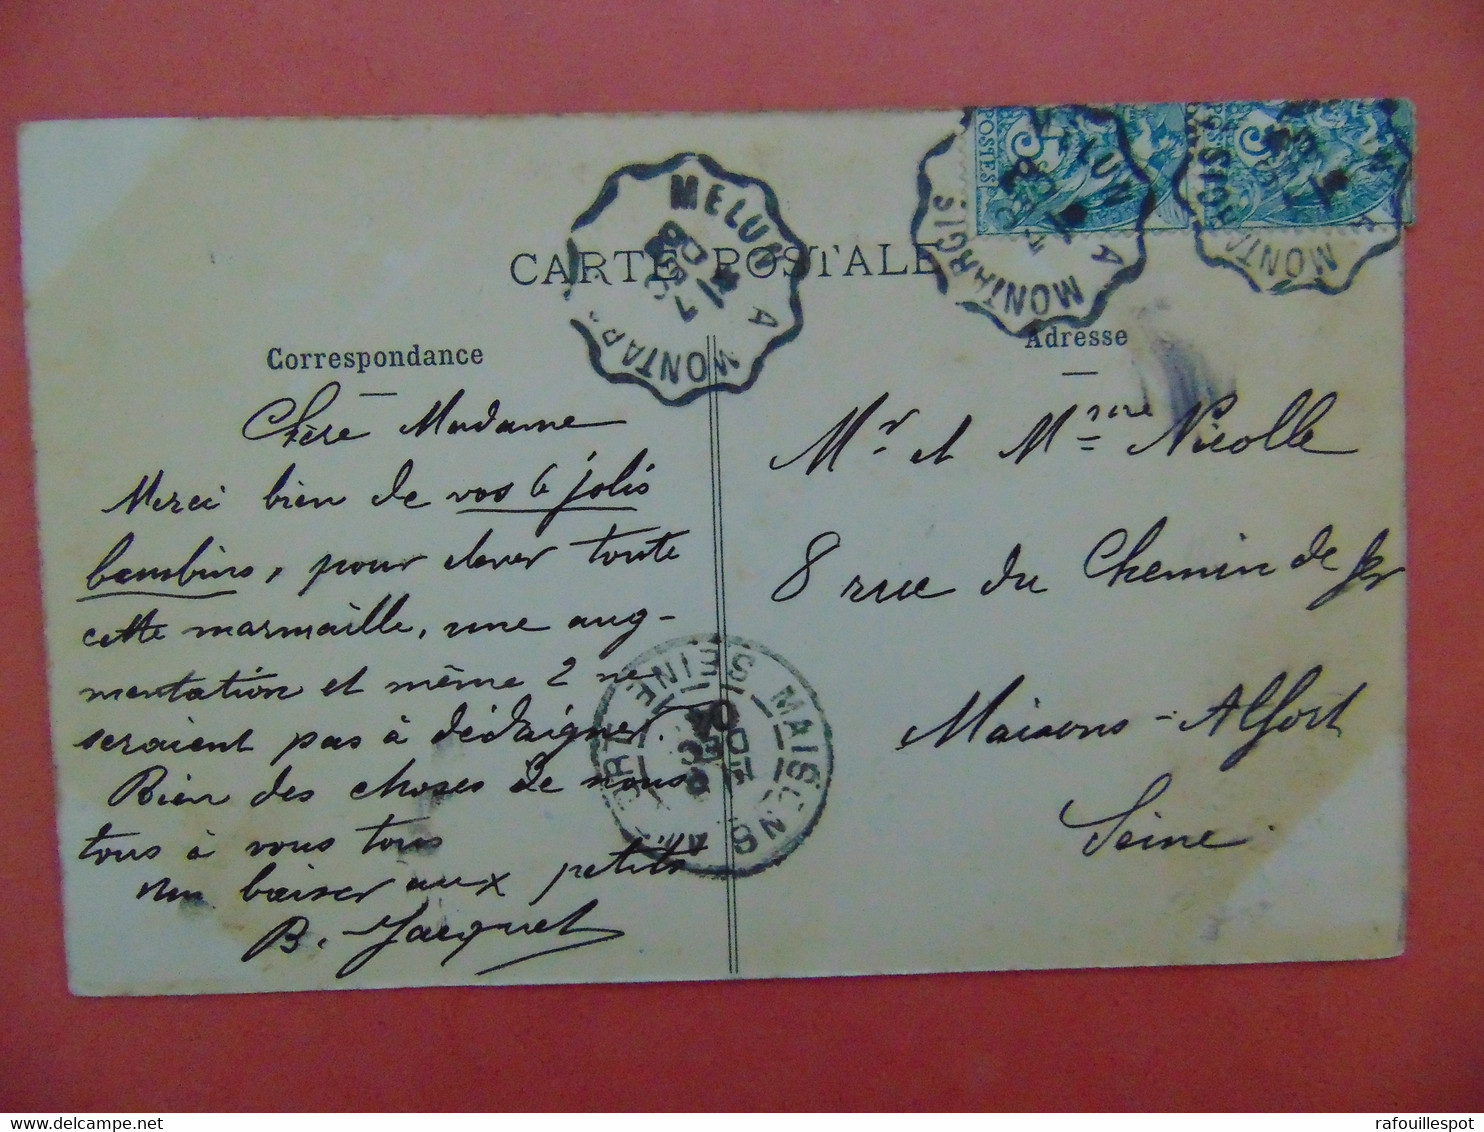 CARTE POSTALE
Correspondance
Chère Madame
Merci bien de vos 6 jolis
bambins, pour élever toute
cette marmaille, une aug-
mentation et même 2 ne
seraient pas à dédaigner.
Bien des choses de nous
tous à vous tous
Un baiser aux petits
B. Jacquet
Adresse
Mr et Mme Nicolle
8 rue du Chemin de fer
Maisons-Alfort
Seine.
MELUN A MONTAR
7 DEC
MELUN A MONTARGIS
DEC
POSTES 5
MONTA GIS
5
MAISONS SEINE
DEC
04
rafouillespot